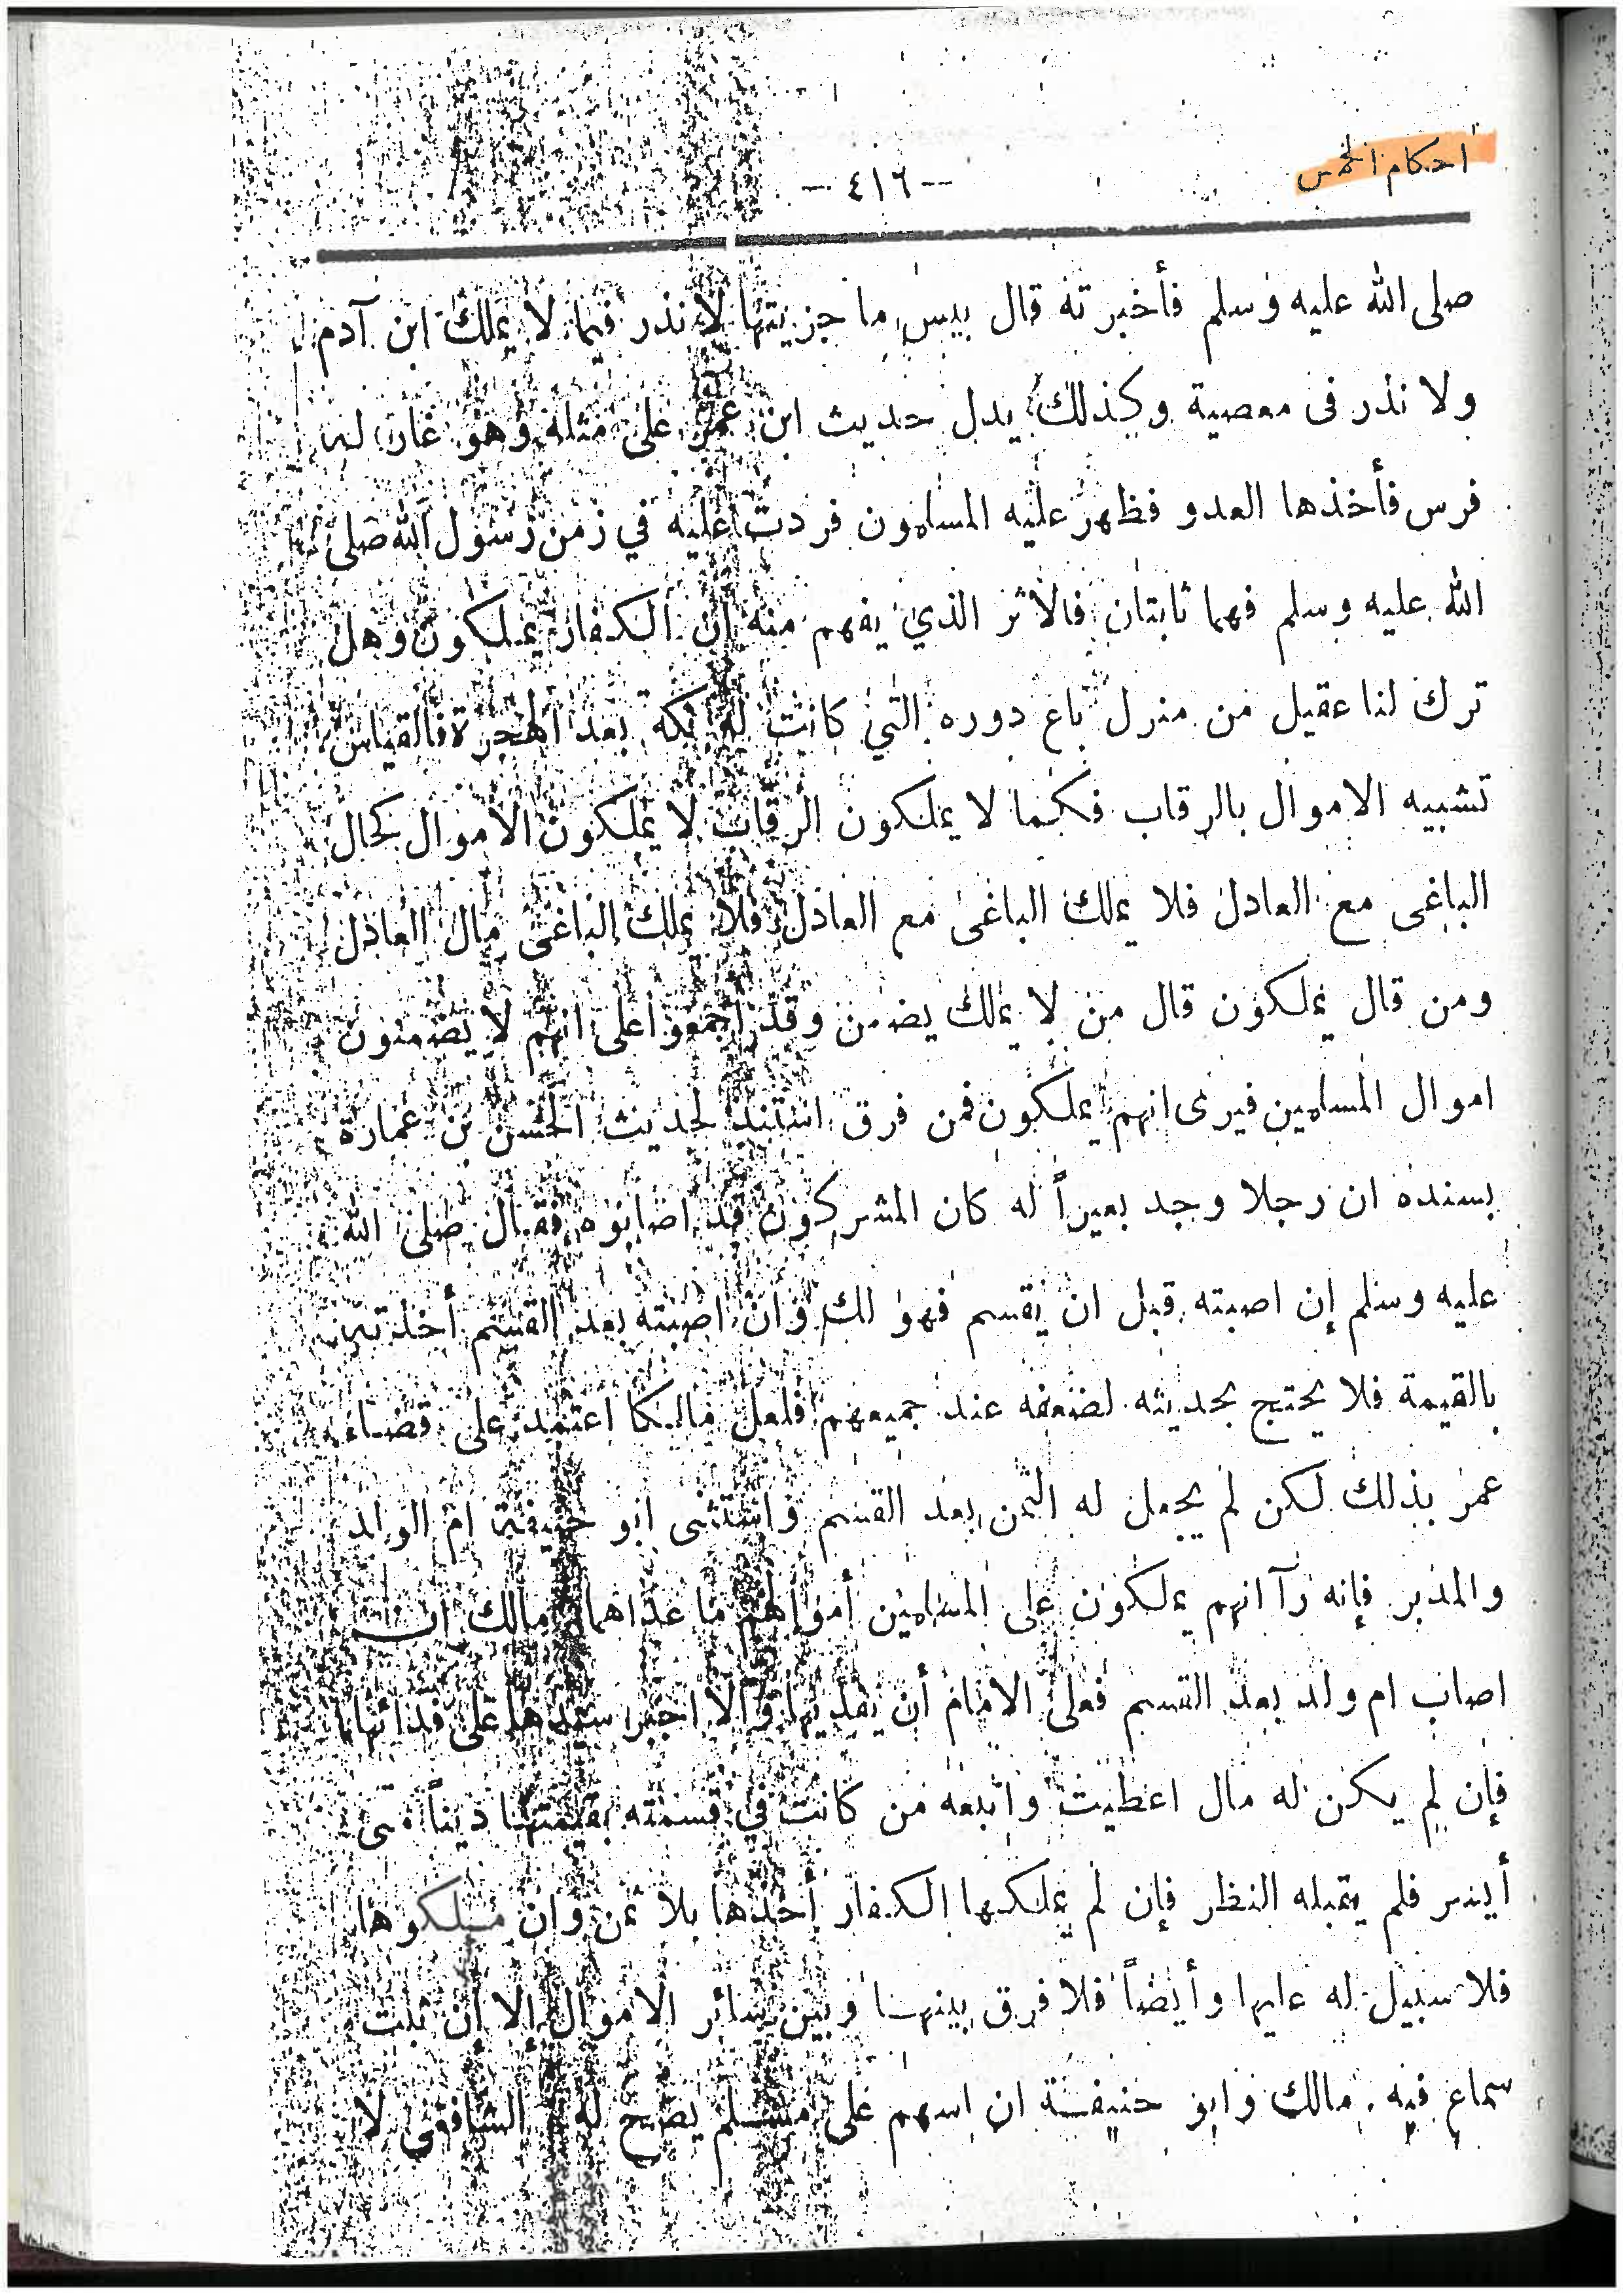 احكام الخمس
-- ٤١٦ --
صلى الله عليه وسلم فأخبرته قال بيس ما جزيتها لا نذر فيما لا يملك ابن آدم
ولا نذر فى معصية وكذلك يدل حديث ابن عمر على مثله وهو غار له
فرس فأخذها العدو فظهر عليه المسلمون فردت عليه في زمن رسول الله صلى
الله عليه وسلم فهما ثابتان فالأثر الذي يفهم منه ان الكفار يملكون وهل
ترك لنا عقيل من منزل باع دوره التي كانت له بمكة بعد الهجرة فالقياس
تشبيه الاموال بالرقاب فكما لا يملكون الرقاب لا يملكون الاموال كحال
الباغى مع العادل فلا يملك الباغى مع العادل فلا يملك الباغى مال العادل
ومن قال يملكون قال من لا يملك يضمن وقد اجمعوا على انهم لا يضمنون
اموال المسلمين فيرى انهم يملكون فمن فرق استند لحديث الحسن بن عمارة
بسنده ان رجلا وجد بعيراً له كان المشركون قد اصابوه فقال صلى الله
عليه وسلم إن اصبته قبل ان يقسم فهو لك وان اصبته بعد القسم أخذته
بالقيمة فلا يحتج بحديثه لضعفه عند جميعهم فلعل مالكا اعتمد على قضاء
عمر بذلك لكن لم يجعل له الثمن بعد القسم واستثنى ابو حنيفة ام الولد
والمدبر فإنه رآ انهم يملكون على المسلمين أموالهم ما عداهما مالك ان
اصاب ام ولد بعد القسم فعلى الامام أن يفديها والا اجبر سيدها على فدائها
فإن لم يكن له مال اعطيت واتبعه من كانت في قسمته بقيمتها ديناً متى
أيسر فلم يقبله النظر فإن لم يملكها الكفار أخذها بلا ثمن وان ملكوها
فلا سبيل له عليها وأيضاً فلا فرق بينها وبين سائر الاموال الا ان ثبت
سماع فيه مالك وابو حنيفة ان اسهم على مسلم يصح له الشافعي لا